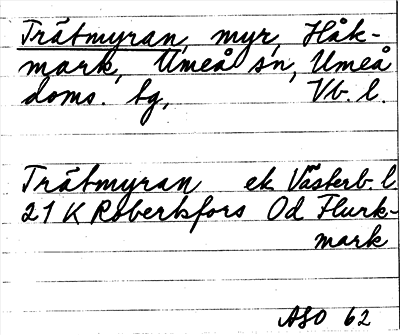 Trätmyran, myr, Håk-
mark, Umeå sn, Umeå
doms. tg, Vb. l.
Trätmyran ek Västerb. l
21 K Robertsfors Od Flurk-
mark
ASO 62